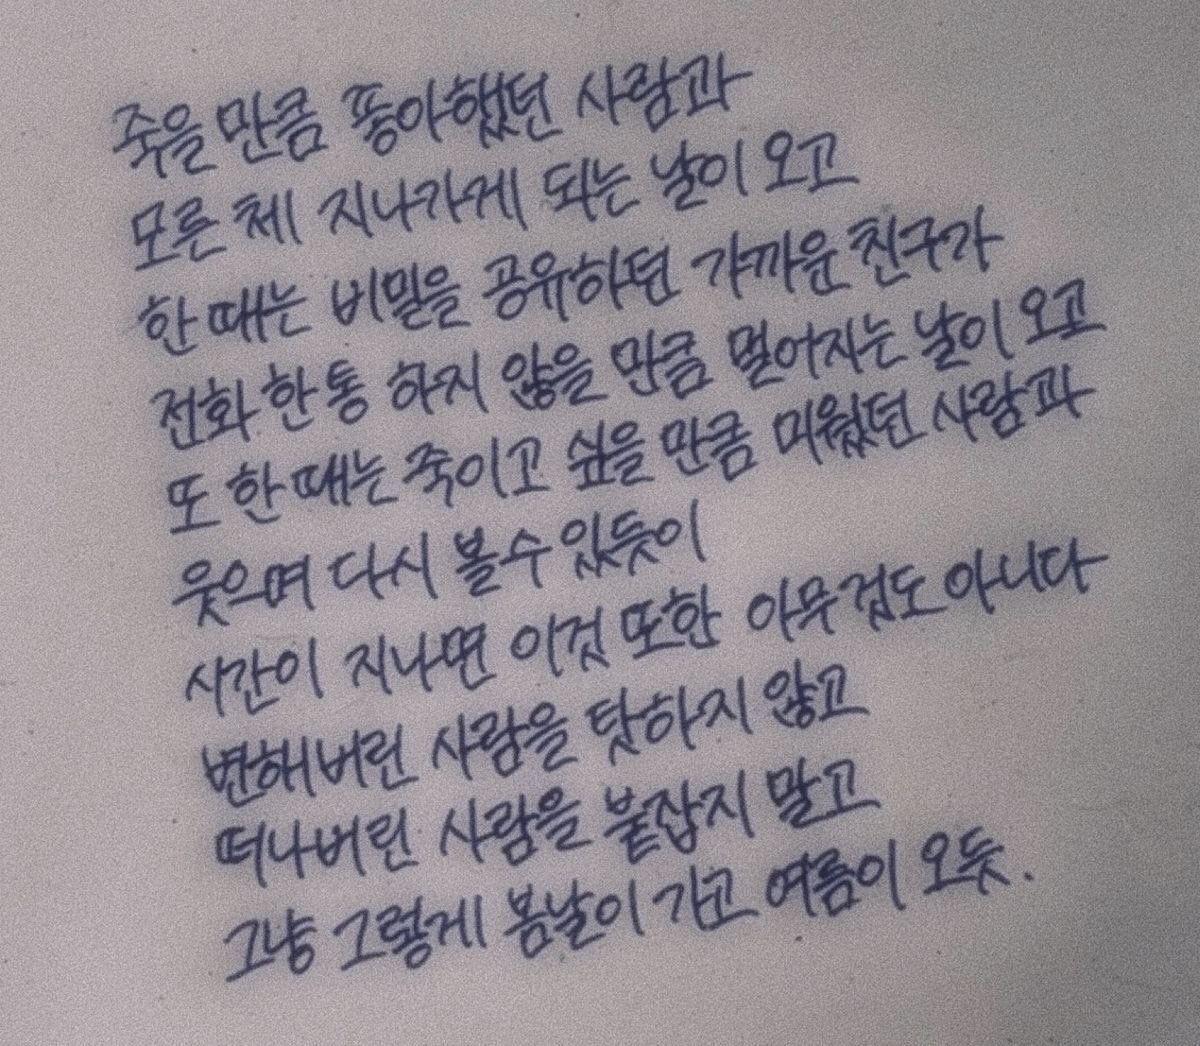 죽을 만큼 좋아했던 사람과
모른 체 지나가게 되는 날이 오고
한 때는 비밀을 공유하던 가까운 친구가
전화 한 통 하지 않을 만큼 멀어지는 날이 오고
또 한 때는 죽이고 싶을 만큼 미웠던 사람과
웃으며 다시 볼 수 있듯이
시간이 지나면 이것 또한 아무것도 아니다
변해버린 사람을 탓하지 않고
떠나버린 사람을 붙잡지 말고
그냥 그렇게 봄날이 가고 여름이 오듯.